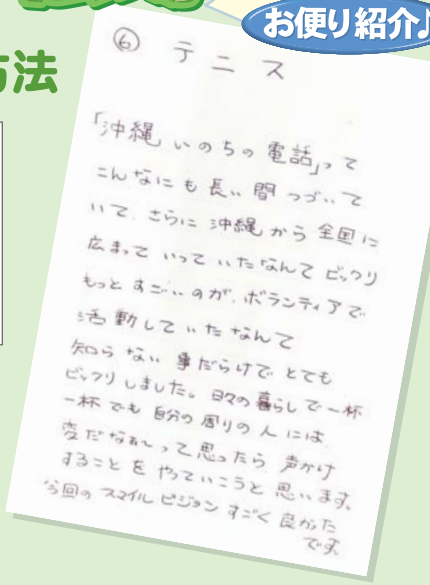 お便り紹介♪
方法
⑥ テニス
「沖縄いのちの電話」って
こんなにも長い間つづいて
いて、さらに沖縄から全国に
広まっていっていたなんてビックリ
もっとすごいのが、ボランティアで
活動していたなんて
知らない事だらけでとても
ビックリしました。日々の暮らしで一杯
一杯でも自分の周りの人には
変だなぁ〜って思ったら声かけ
することをやっていこうと思います。
今回のスマイルビジョンすごく良かった
です。